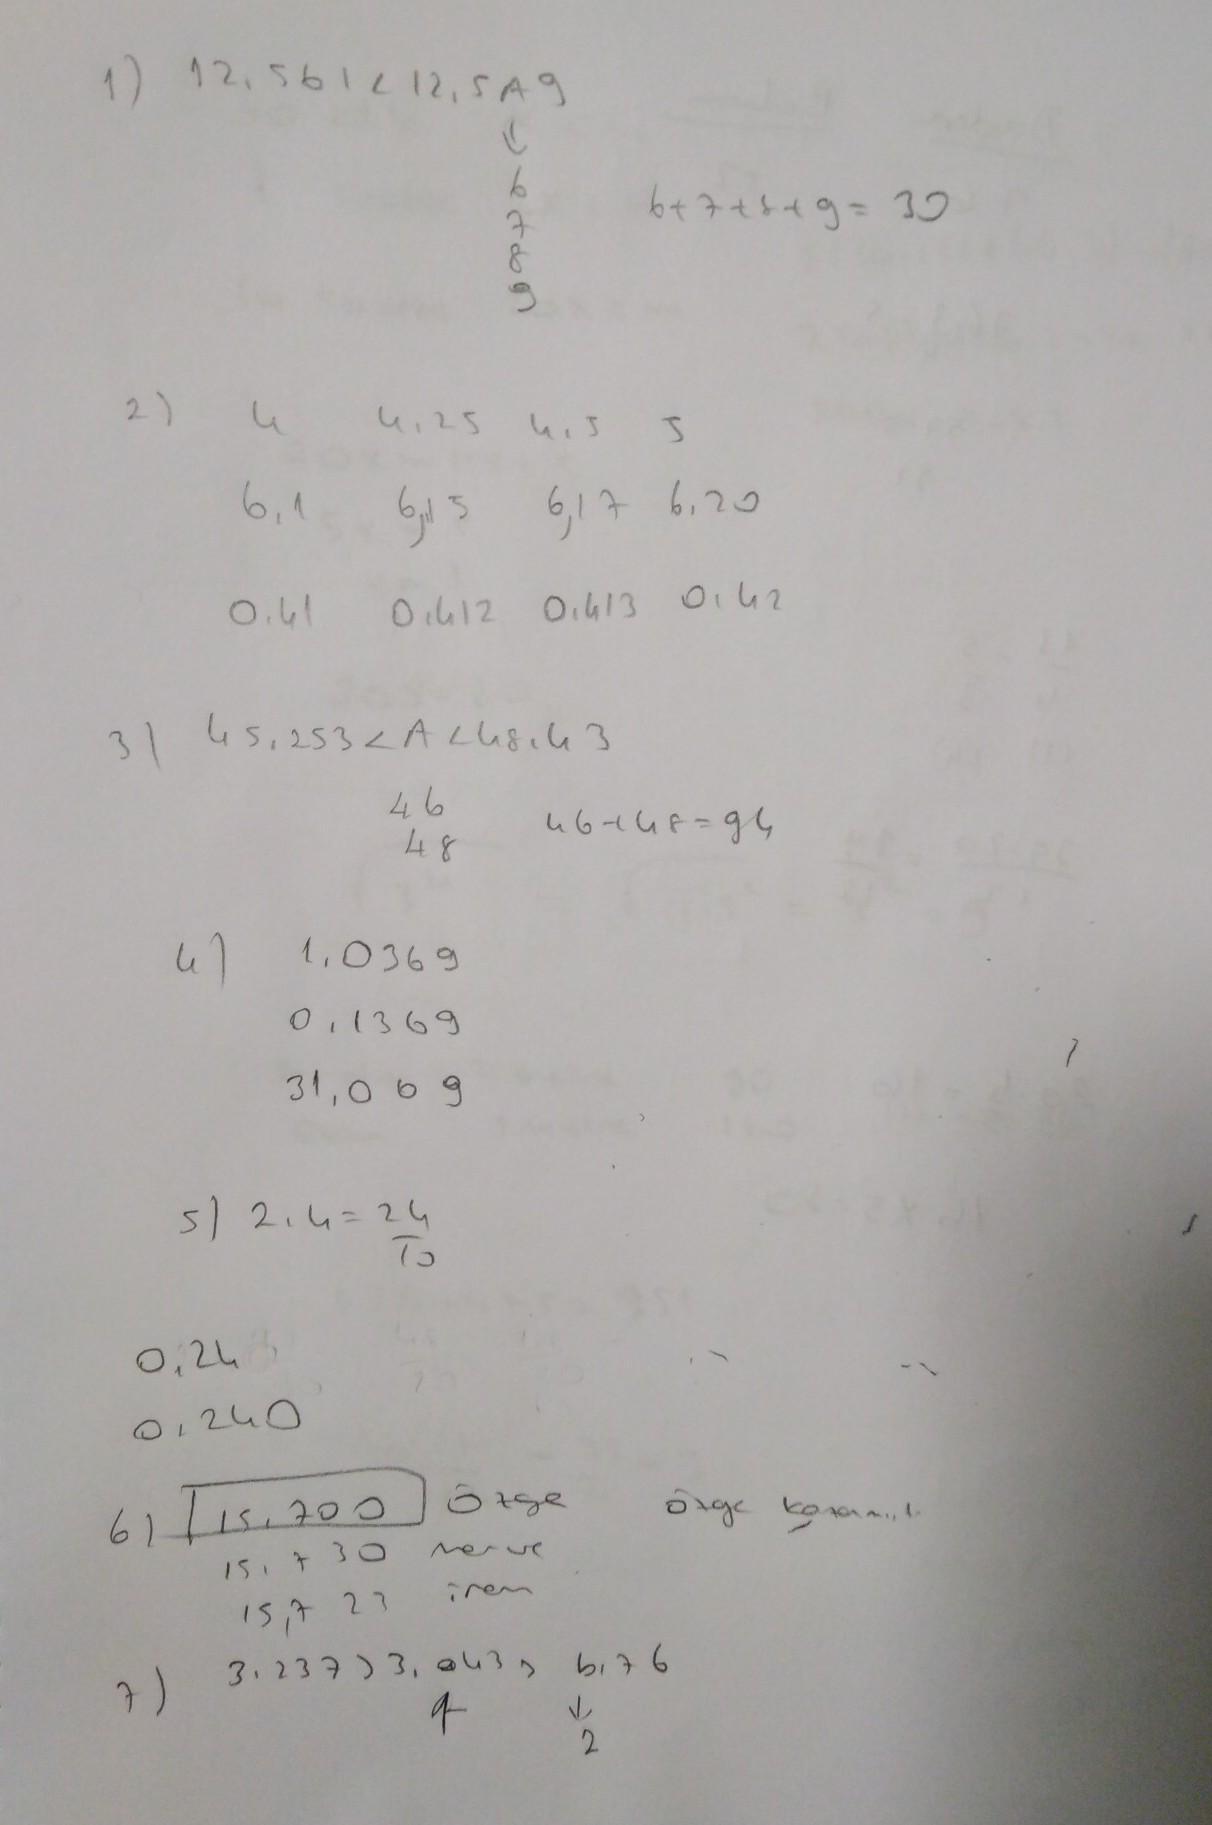 1) 12,561 < 12,5A9
↓
6
7
8
9
6+7+8+9= 30
2) 4 4,25 4,5 5
6,1 6,15 6,17 6,20
0,41 0,412 0,413 0,42
3) 45,253 < A < 48,43
46
48
46+48=94
4) 1,0369
0,1369
31,069
5) 2,4=24/10
0,24
0,240
6) 15,700 Özge
özge kazanır
15,730 merve
15,723 irem
7) 3,237 > 3,043 > b,76
↓
2